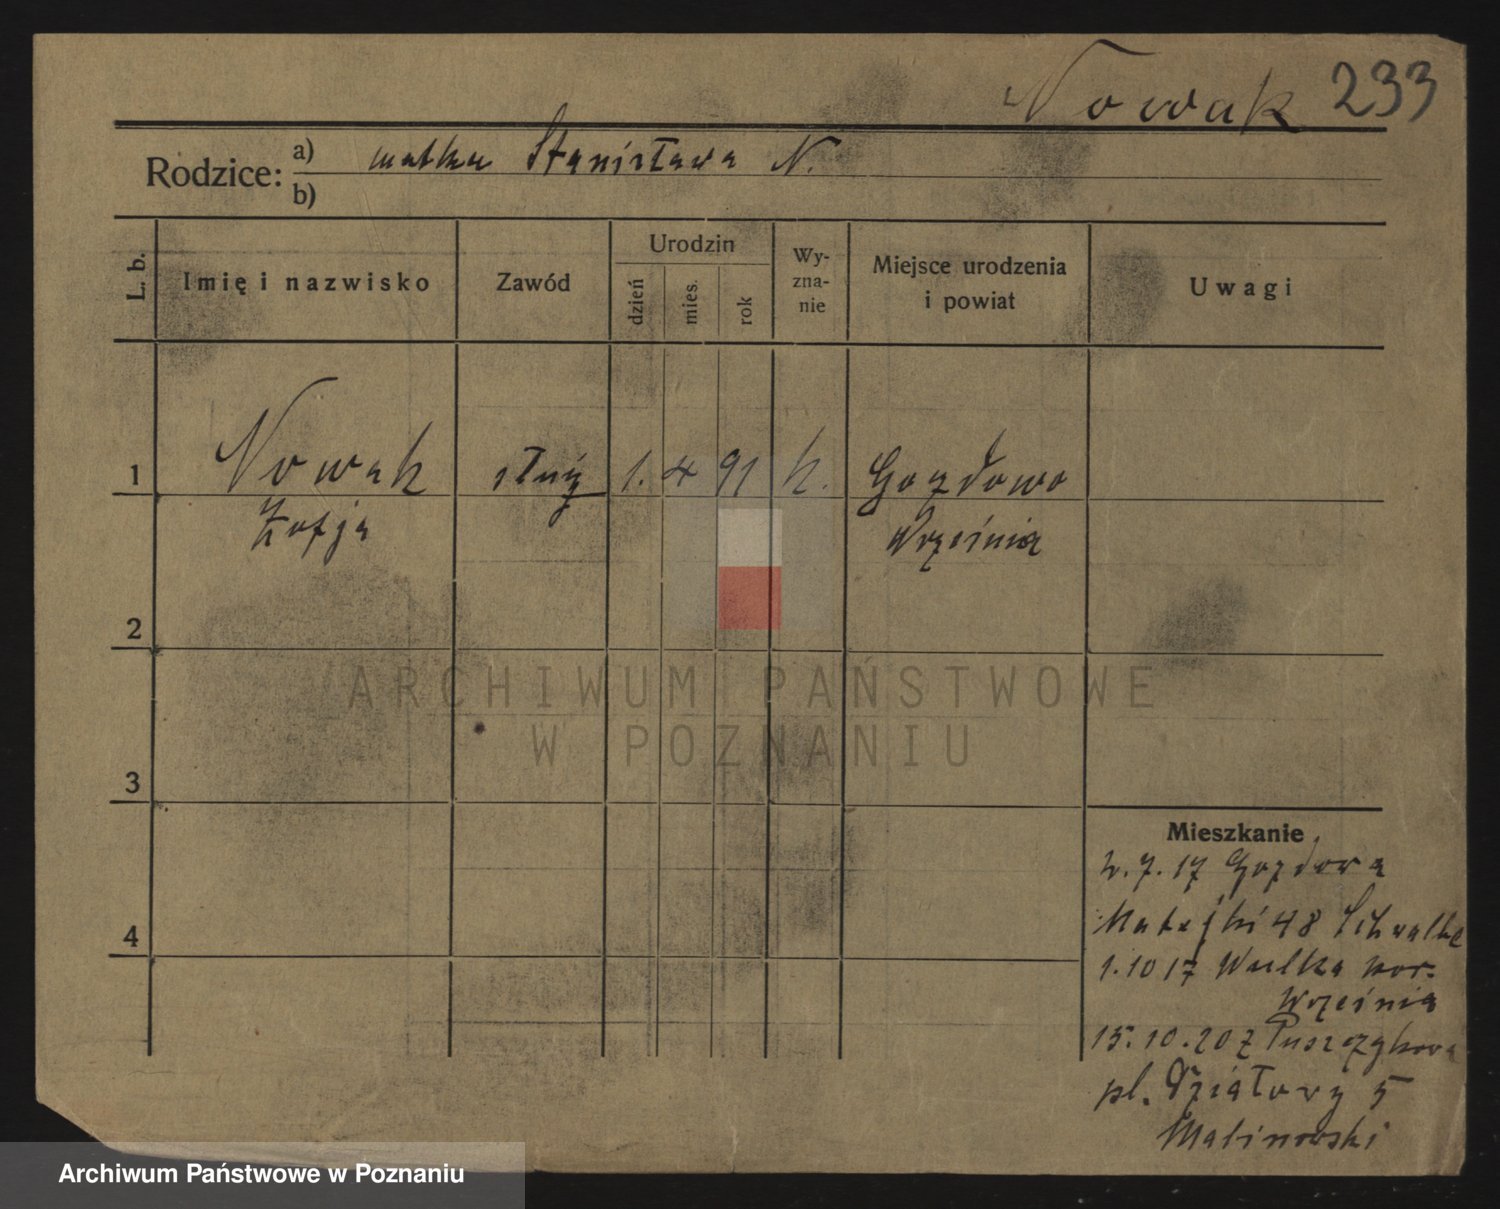 Nowak 233
Rodzice: a) matka Stanisława N.
b)
L. b.
Imię i nazwisko
Zawód
Urodzin
dzień
mies.
rok
Wy-
zna-
nie
Miejsce urodzenia
i powiat
Uwagi
1 Nowak służ 1. 4 91 k. Gozdowo
Zofja Września
2
ARCHIWUM PAŃSTWOWE
W POZNANIU
3
4
Mieszkanie
2.7.17 Gozdowa
Matejki 48 Schwalbe
1.10 17 Wulka pow.
Września
15.10.20 z Puszczykowa
pl. Działowy 5
Malinowski
Archiwum Państwowe w Poznaniu